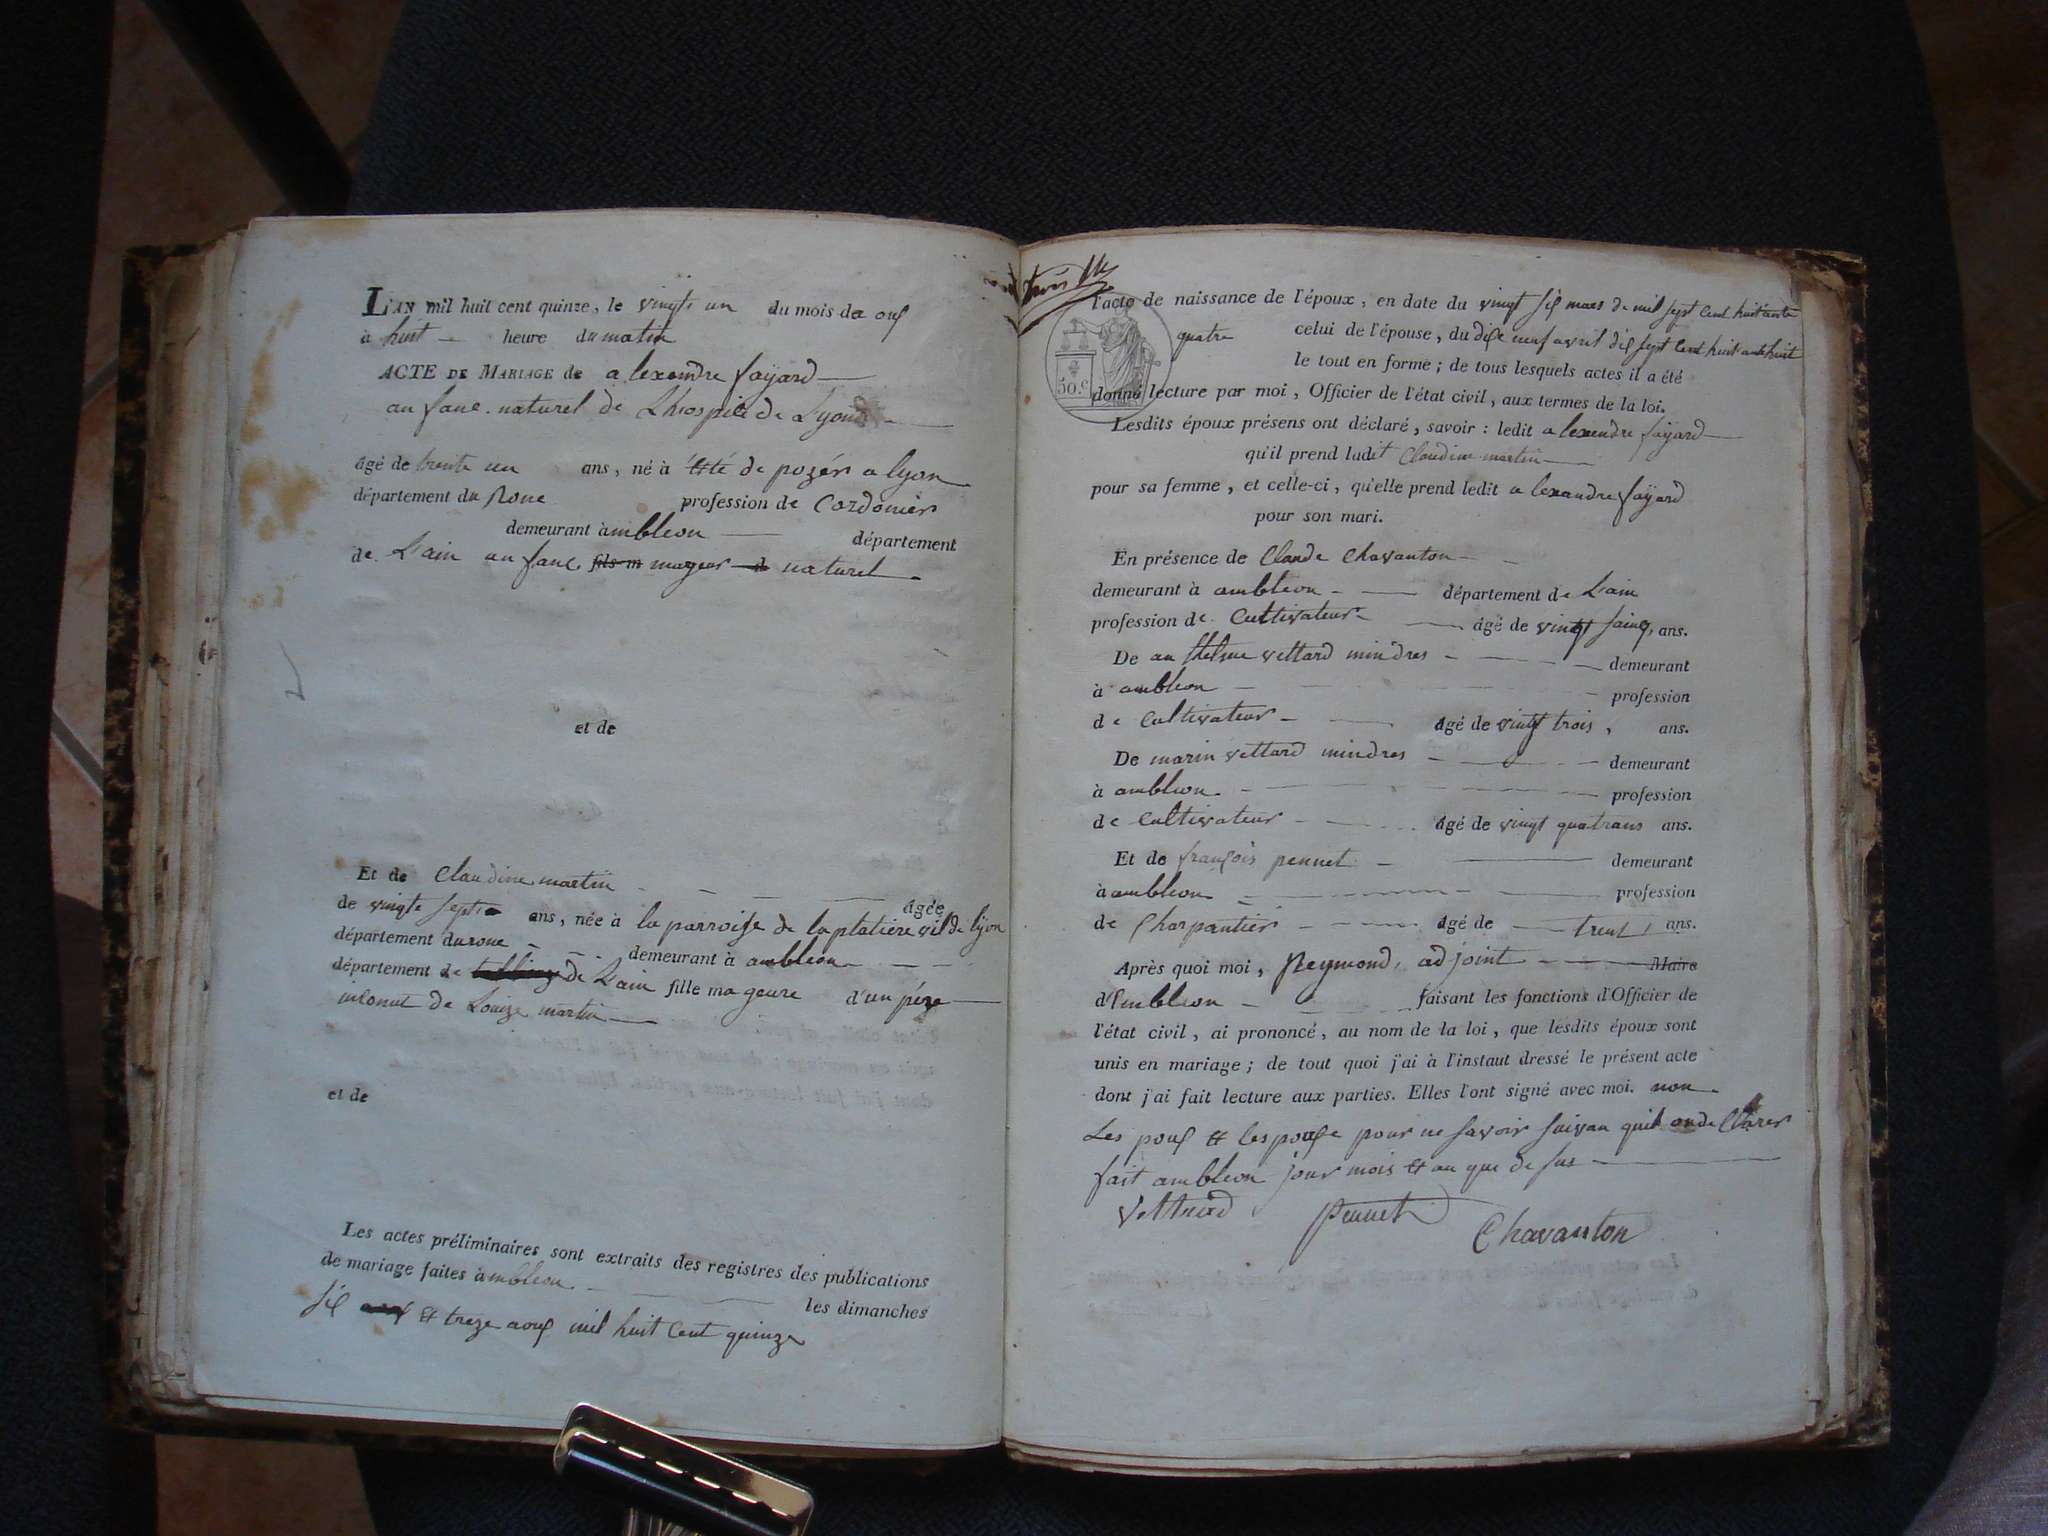 L'AN mil huit cent quinze, le vingt un du mois de ous
à huit heure du matin
ACTE DE MARIAGE de alexendre fayard
an fanc naturel de Lhospice de Lyon
âgé de trente un ans, né à été de pozér a lyon
département du Rone profession de Cordonier
demeurant àmbleon département
de L'ain an fanc mageur naturel
et de
Et de Claudine martin âgée
de vingte sept ans, née à la parroise de la platiere vil de lyon
département du rone demeurant à ambleon
département de de L'ain fille mageure d'un péze
inconut de Louize martin
et de
Les actes préliminaires sont extraits des registres des publications
de mariage faites àmbleon les dimanches
sis et treze aous mil huit cent quinze
trois
l'acte de naissance de l'époux, en date du vingt sis mars de mil sept cent huitante
quatre celui de l'épouse, du dise neuf avril dis sept cent huitante huit
le tout en forme; de tous lesquels actes il a été
donné lecture par moi, Officier de l'état civil, aux termes de la loi.
50.c
Lesdits époux présens ont déclaré, savoir: ledit alexendre fayard
qu'il prend ladit Claudine martin
pour sa femme, et celle-ci, qu'elle prend ledit alexandre fayard
pour son mari.
En présence de Claude Chavanton
demeurant à ambleon département de L'ain
profession de Cultivateur âgé de vingt sainq, ans.
De vettard mindres demeurant
à ambleon profession
de Cultivateur âgé de vingt trois, ans.
De marin vettard mindres demeurant
à ambleon profession
de Cultivateur âgé de vingt quatrans ans.
Et de françois pennet demeurant
à ambleon profession
de Charpantier âgé de trent, ans.
Après quoi moi, Reymond, adjoint Maire
d'embleon faisant les fonctions d'Officier de
l'état civil, ai prononcé, au nom de la loi, que lesdits époux sont
unis en mariage; de tout quoi j'ai à l'instaut dressé le présent acte
dont j'ai fait lecture aux parties. Elles l'ont signé avec moi. non
Les pous et lespouse pour ne savoir suivan quil on de Clarer
fait ambleon jour mois et an que de sus
Vettard Pennet Chavanton